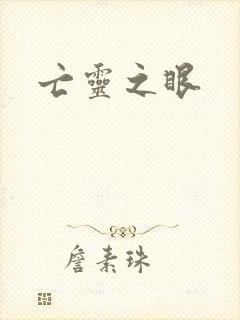 亡靈之眼
詹素珠